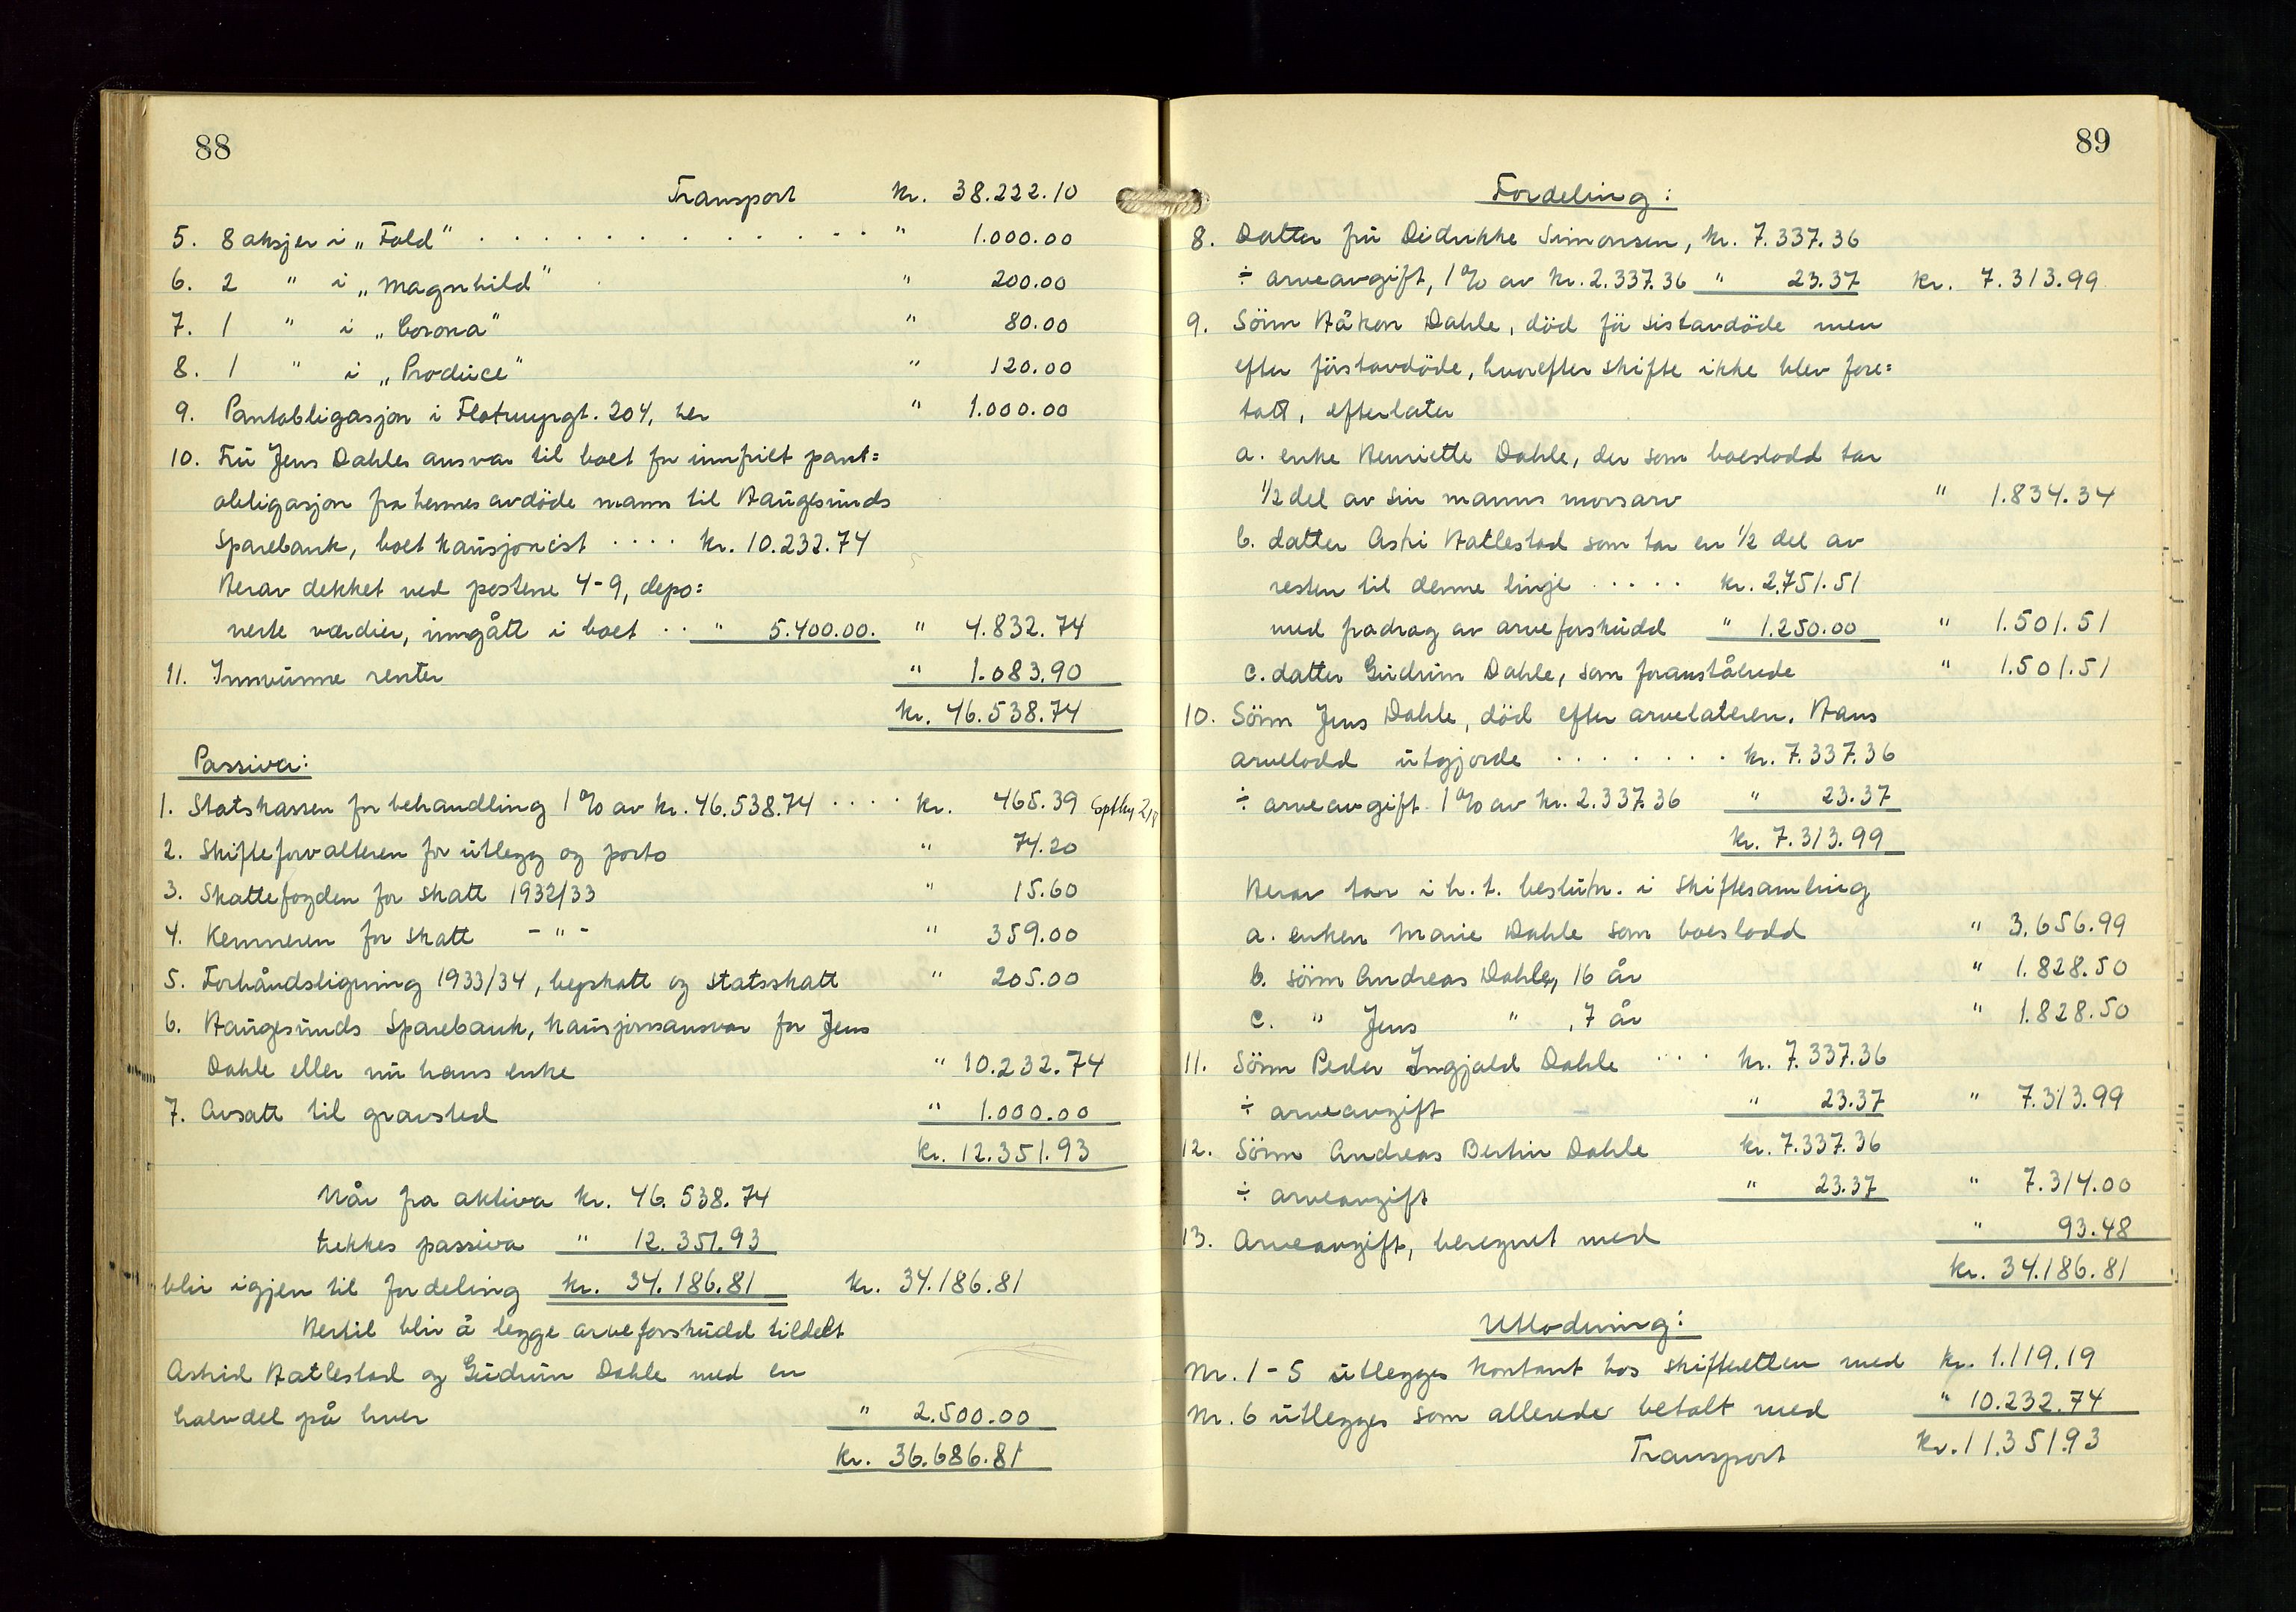 88
Transport kr. 38.222.10
5. 8 aksjer i „Fold" . . . . . . . . . . . . . " 1.000.00
6. 2 " i „Magnhild" " 200.00
7. 1 " i „Corona" " 80.00
8. 1 " i „Produce" " 120.00
9. Pantobligasjon i Flotmyrgt. 204, her " 1.000.00
10. Fru Jens Dahles ansvar til boet for innfriet pant=
obligasjon fra hennes avdöde mann til Haugesunds
Sparebank, boet kausjonist . . . . kr. 10.232.74
Herav dekket ved postene 4-9, depo=
nerte værdier, inngått i boet . . " 5.400.00. " 4.832.74
11. Innvunne renter " 1.083.90
kr. 46.538.74
Passiva:
1. Statskassen for behandling 1% av kr. 46.538.74 . . . . kr. 465.39
2. Skifteforvalteren for utlegg og porto " 74.20
3. Skattefogden for skatt 1932/33 " 15.60
4. Kemneren for skatt - " - " 359.00
5. Forhåndsligning 1933/34, byskatt og statsskatt " 205.00
6. Haugesunds Sparebank, kausjonsansvar for Jens
Dahle eller nu hans enke " 10.232.74
7. Avsatt til gravsted " 1.000.00
kr. 12.351.93
Når fra aktiva kr. 46.538.74
trekkes passiva " 12.351.93
blir igjen til fordeling kr. 34.186.81 kr. 34.186.81
Hertil blir å legge arveforskudd tildelt
Astrid Hatlestad og Gudrun Dahle med en
halvdel på hver " 2.500.00
kr. 36.686.81
89
Fordeling:
8. Datter fru Didrikke Simonsen, kr. 7.337.36
÷ arveavgift, 1% av kr. 2.337.36 " 23.37 kr. 7.313.99
9. Sönn Håkon Dahle, död för sistavdöde men
efter förstavdöde, hvorefter skifte ikke blev fore=
tatt, efterlater
a. enke Henriette Dahle, der som boeslodd tar
1/2 del av sin manns morsarv " 1.834.34
b. datter Astri Hatlestad som tar en 1/2 del av
resten til denne linje . . . . . kr. 2.751.51
med fradrag av arveforskudd " 1.250.00 " 1.501.51
c. datter Gudrun Dahle, som foranstående " 1.501.51
10. Sönn Jens Dahle, död efter arvelateren. Hans
arvelodd utgjorde . . . . . . . kr. 7.337.36
÷ arveavgift 1% av kr. 2.337.36 " 23.37
kr. 7.313.99
Herav tar i h. t. beslutn. i skiftesamling
a. enken Marie Dahle som boeslodd " 3.656.99
b. sönn Andreas Dahle, 16 år " 1.828.50
c. " Jens " , 7 år " 1.828.50
11. Sönn Peder Ingjald Dahle . . . . kr. 7.337.36
÷ arveavgift " 23.37 " 7.313.99
12. Sönn Andreas Bertin Dahle kr. 7.337.36
÷ arveavgift " 23.37 " 7.314.00
13. Arveavgift, beregnet med " 93.48
kr. 34.186.81
Utlodning:
Nr. 1-5 utlegges kontant hos skifteretten med kr. 1.119.19
Nr. 6 utlegges som allerede betalt med " 10.232.74
Transport kr. 11.351.93